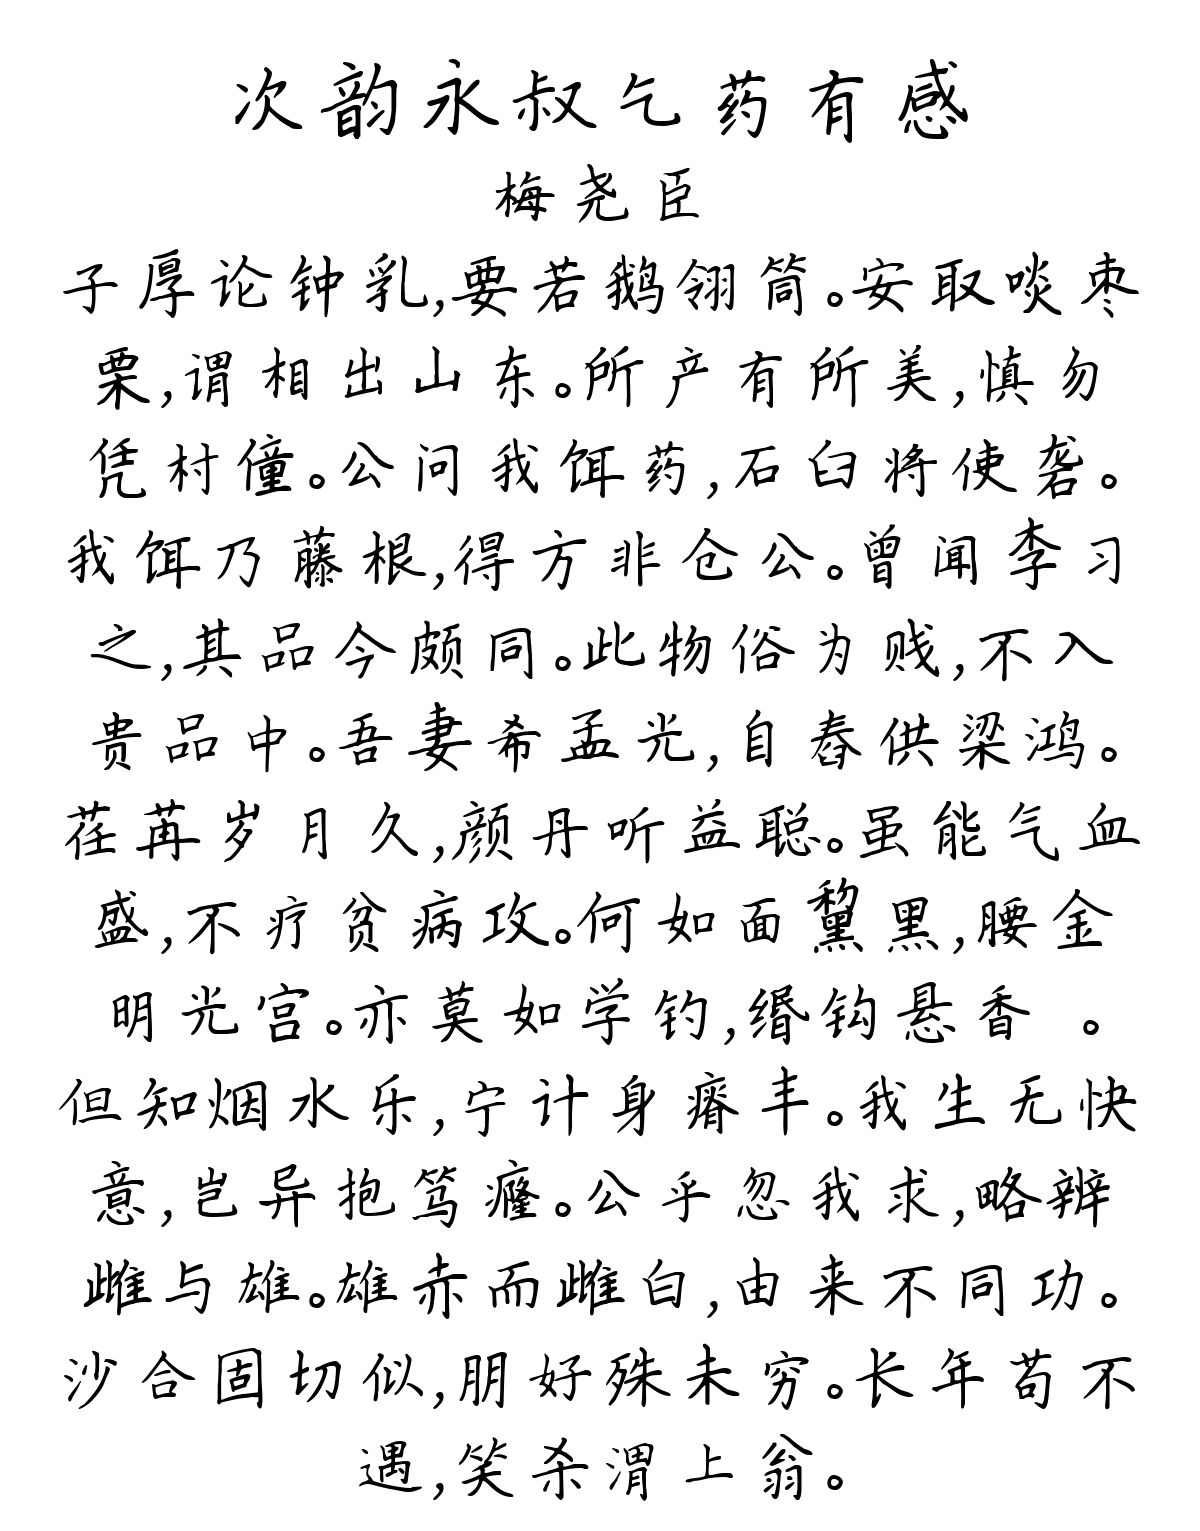 次韵永叔乞药有感
梅尧臣
子厚论钟乳,要若鹅翎筒。安取啖枣
栗,谓相出山东。所产有所美,慎勿
凭村僮。公问我饵药,石臼将使砻。
我饵乃藤根,得方非仓公。曾闻李习
之,其品今颇同。此物俗为贱,不入
贵品中。吾妻希孟光,自舂供梁鸿。
荏苒岁月久,颜丹听益聪。虽能气血
盛,不疗贫病攻。何如面黧黑,腰金
明光宫。亦莫如学钓,缗钩悬香 。
但知烟水乐,宁计身瘠丰。我生无快
意,岂异抱笃癃。公乎忽我求,略辨
雌与雄。雄赤而雌白,由来不同功。
沙合固切似,朋好殊未穷。长年苟不
遇,笑杀渭上翁。